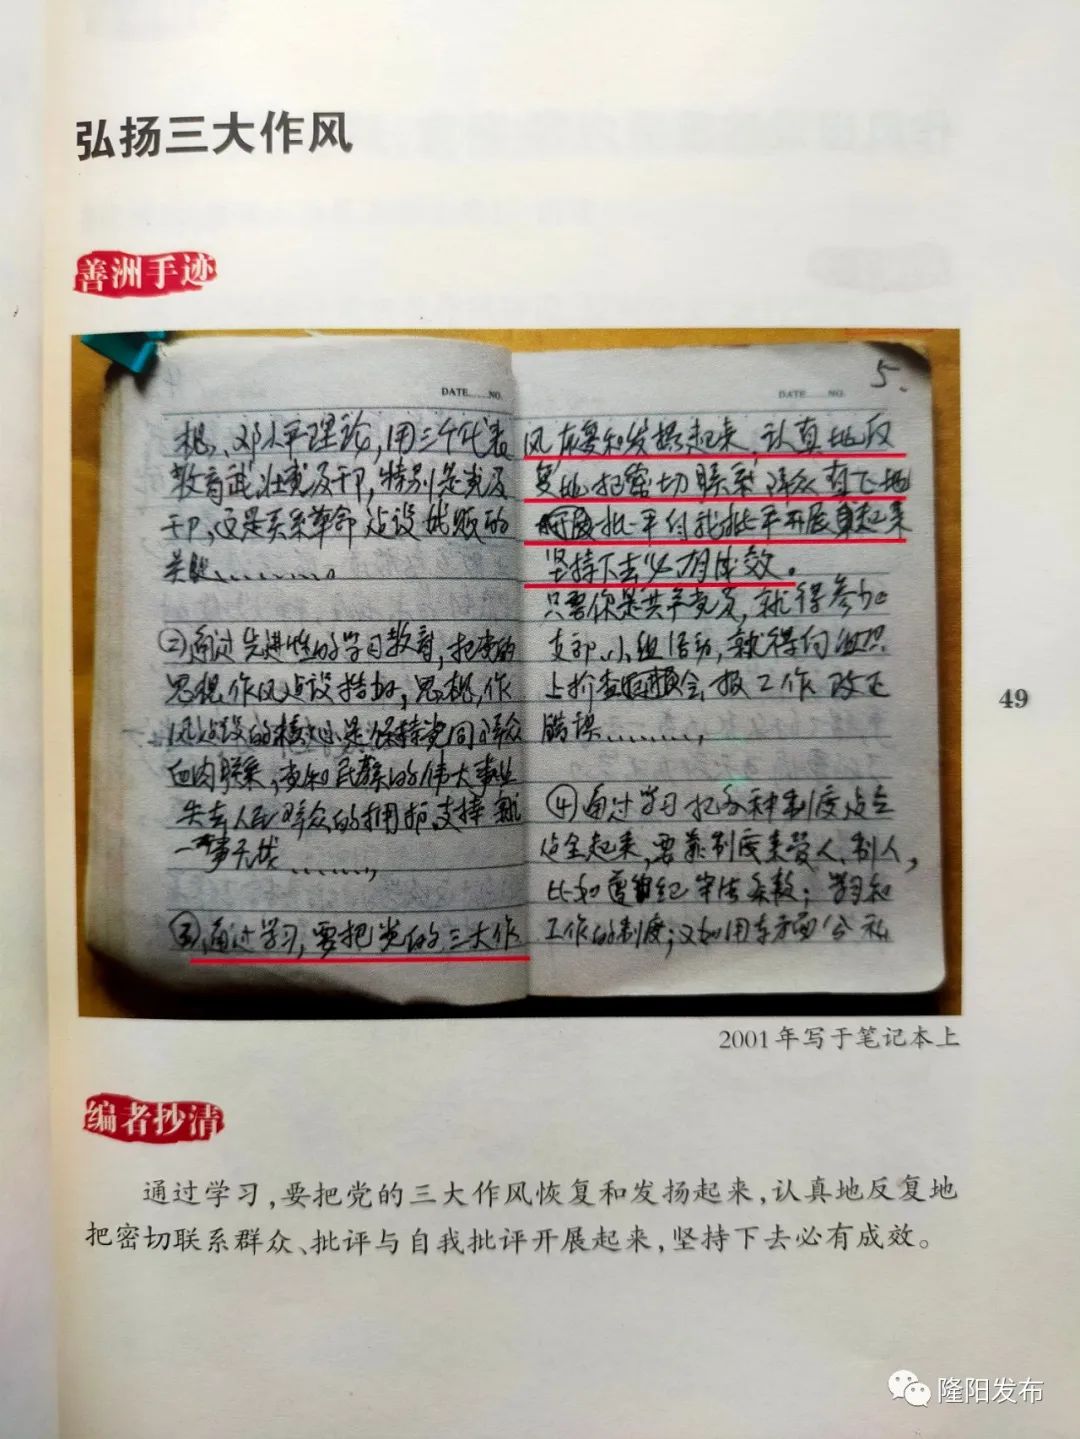 弘扬三大作风
善洲手迹
DATE......NO.
想、邓小平理论，用三个代表
教育武壮党及干部，特别是党及
干部，这是关系革命建设成败的
关键.........。
②通过先进性的学习教育，把党的
思想作风建设搞好，思想，作
风建设的核心是保持党同群众
血肉联系，党和民族的伟大事业
失去人民群众的拥护、支持就
一事无成.......，
③通过学习，要把党的三大作
5.
DATE......NO.
风恢复和发扬起来，认真地反
复地把密切联系群众
批评自我批评开展起来
坚持下去必有成效。
只要你是共产党员，就得参加
支部、小组活动，就得向组织
上 报工作 改正
错误.........，
④通过学习把各种制度建全
建全起来，要靠制度来 人、制人，
比如遵纪守法条款；学习和
工作的制度；又如用车方面公私
49
2001年写于笔记本上
编者抄清
通过学习，要把党的三大作风恢复和发扬起来，认真地反复地
把密切联系群众、批评与自我批评开展起来，坚持下去必有成效。
隆阳发布